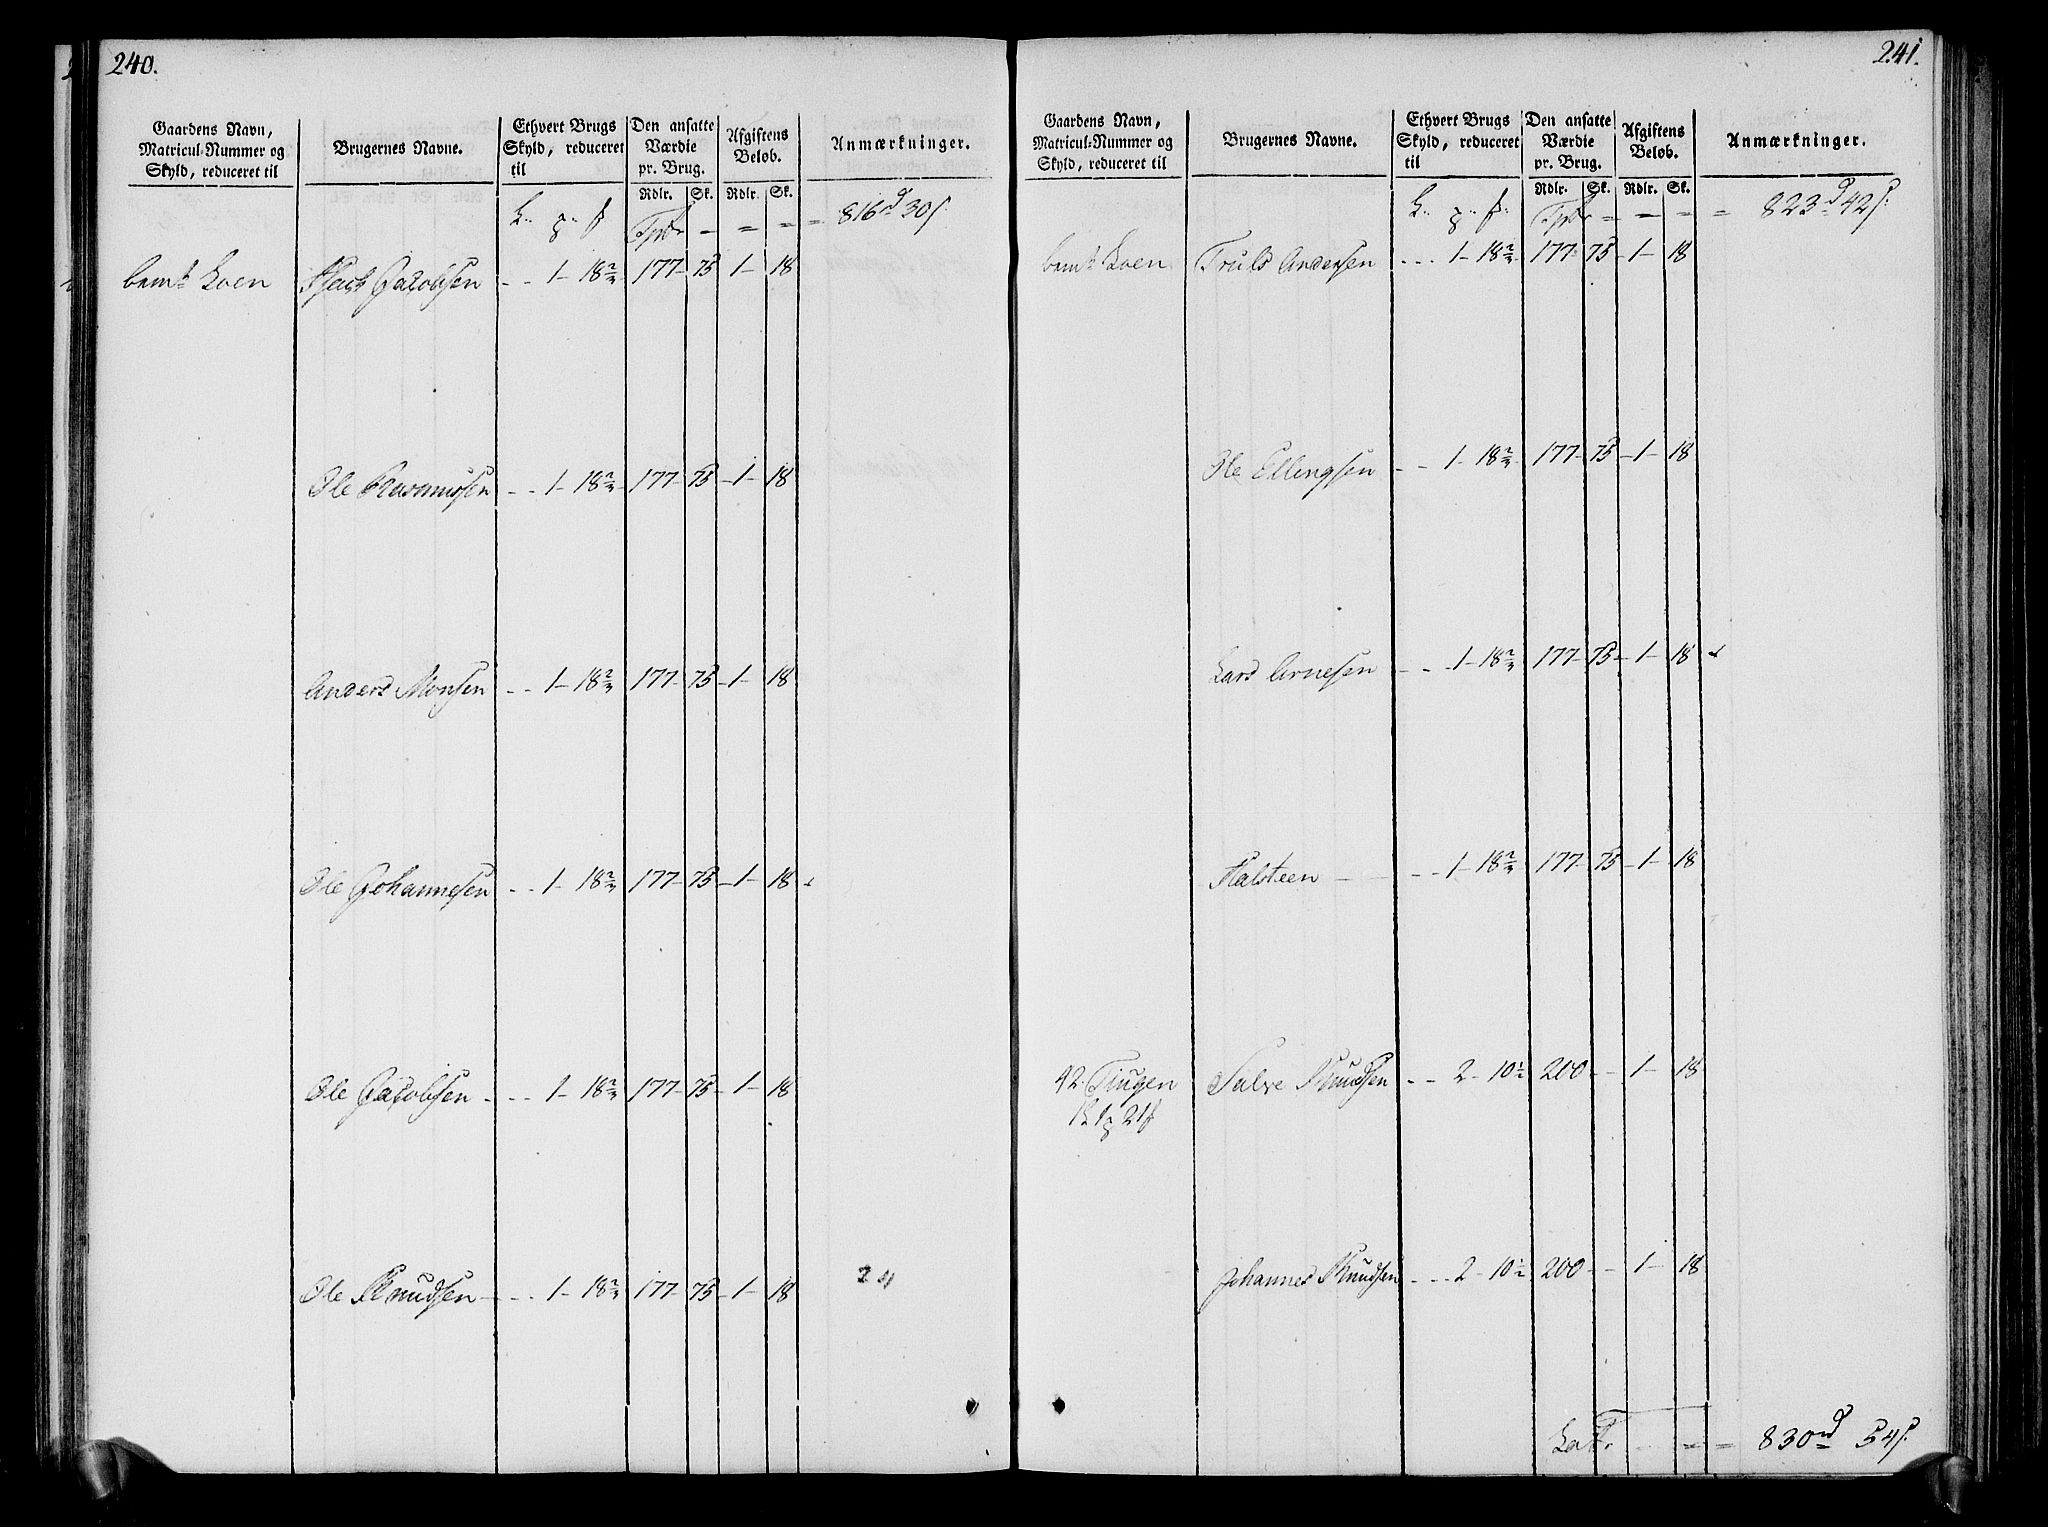 240.
Gaardens Navn, Matricul-Nummer og Skyld, reduceret til
Brugernes Navne.
Ethvert Brugs Skyld, reduceret til
Den ansatte Værdie pr. Brug.
Afgiftens Beløb.
Anmærkninger.
Rdlr. Sk. Rdlr. Sk.
L. 816 d 30 s.
Loen Jacobsen - - 1 - 18 2/7 177 - 75 1 - 18
Ole Rasmussen - - 1 - 18 2/7 177 - 75 - 1 - 18
Anders Monsen - - 1 - 18 2/7 177 - 75 - 1 - 18
Ole Johannesen - - 1 - 18 2/7 177 - 75 - 1 - 18
Ole Jacobsen - - - 1 - 18 2/7 177 - 75 - 1 - 18
Ole Knudsen - - - 1 - 18 2/7 177 - 75 - 1 - 18
241.
Gaardens Navn, Matricul-Nummer og Skyld, reduceret til
Brugernes Navne.
Ethvert Brugs Skyld, reduceret til
Den ansatte Værdie pr. Brug.
Afgiftens Beløb.
Anmærkninger.
Rdlr. Sk. Rdlr. Sk.
L. 823 d 42 s.
Loen Truls Andersen - - - 1 - 18 2/7 177 - 75 - 1 - 18
Ole Ellingsen - - 1 - 18 2/7 177 - 75 - 1 - 18
Lars Arnesen - - - 1 - 18 2/7 177 - 75 - 1 - 18
Halsteen - - - 1 - 18 2/7 177 - 75 - 1 - 18
42. Tiugen Salve Knudsen - - 2 - 10 1/2 200 - - 1 - 18
Johannes Knudsen - - - 2 - 10 1/2 200 - - 1 - 18
Latr - - = = 830 rd 54 s.